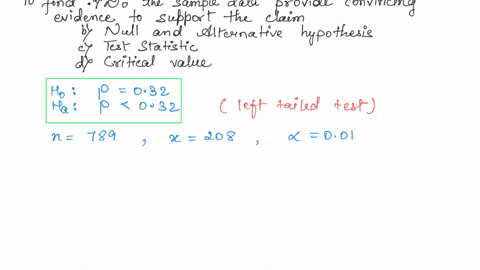 To find : Do the sample data provide convincing
evidence to support the claim
b) Null and Alternative hypothesis
c) Test Statistic
d) Critical value
H₀ : p = 0.32
Hₐ : p < 0.32 ( left tailed test )
n = 789 , x = 208 , α = 0.01